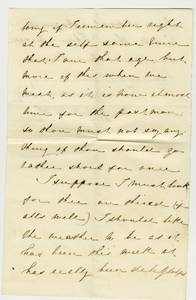 thing if I remember right
at the self same time
that I was that age but
more of this when we
meet, as it is now almost
time for the postman
so thou must not say any
thing if thou should go
rather short for once
I suppose I must look
for thee on third (if
all's well) I should like
the weather to be as it
has been this week it
has really been delightful